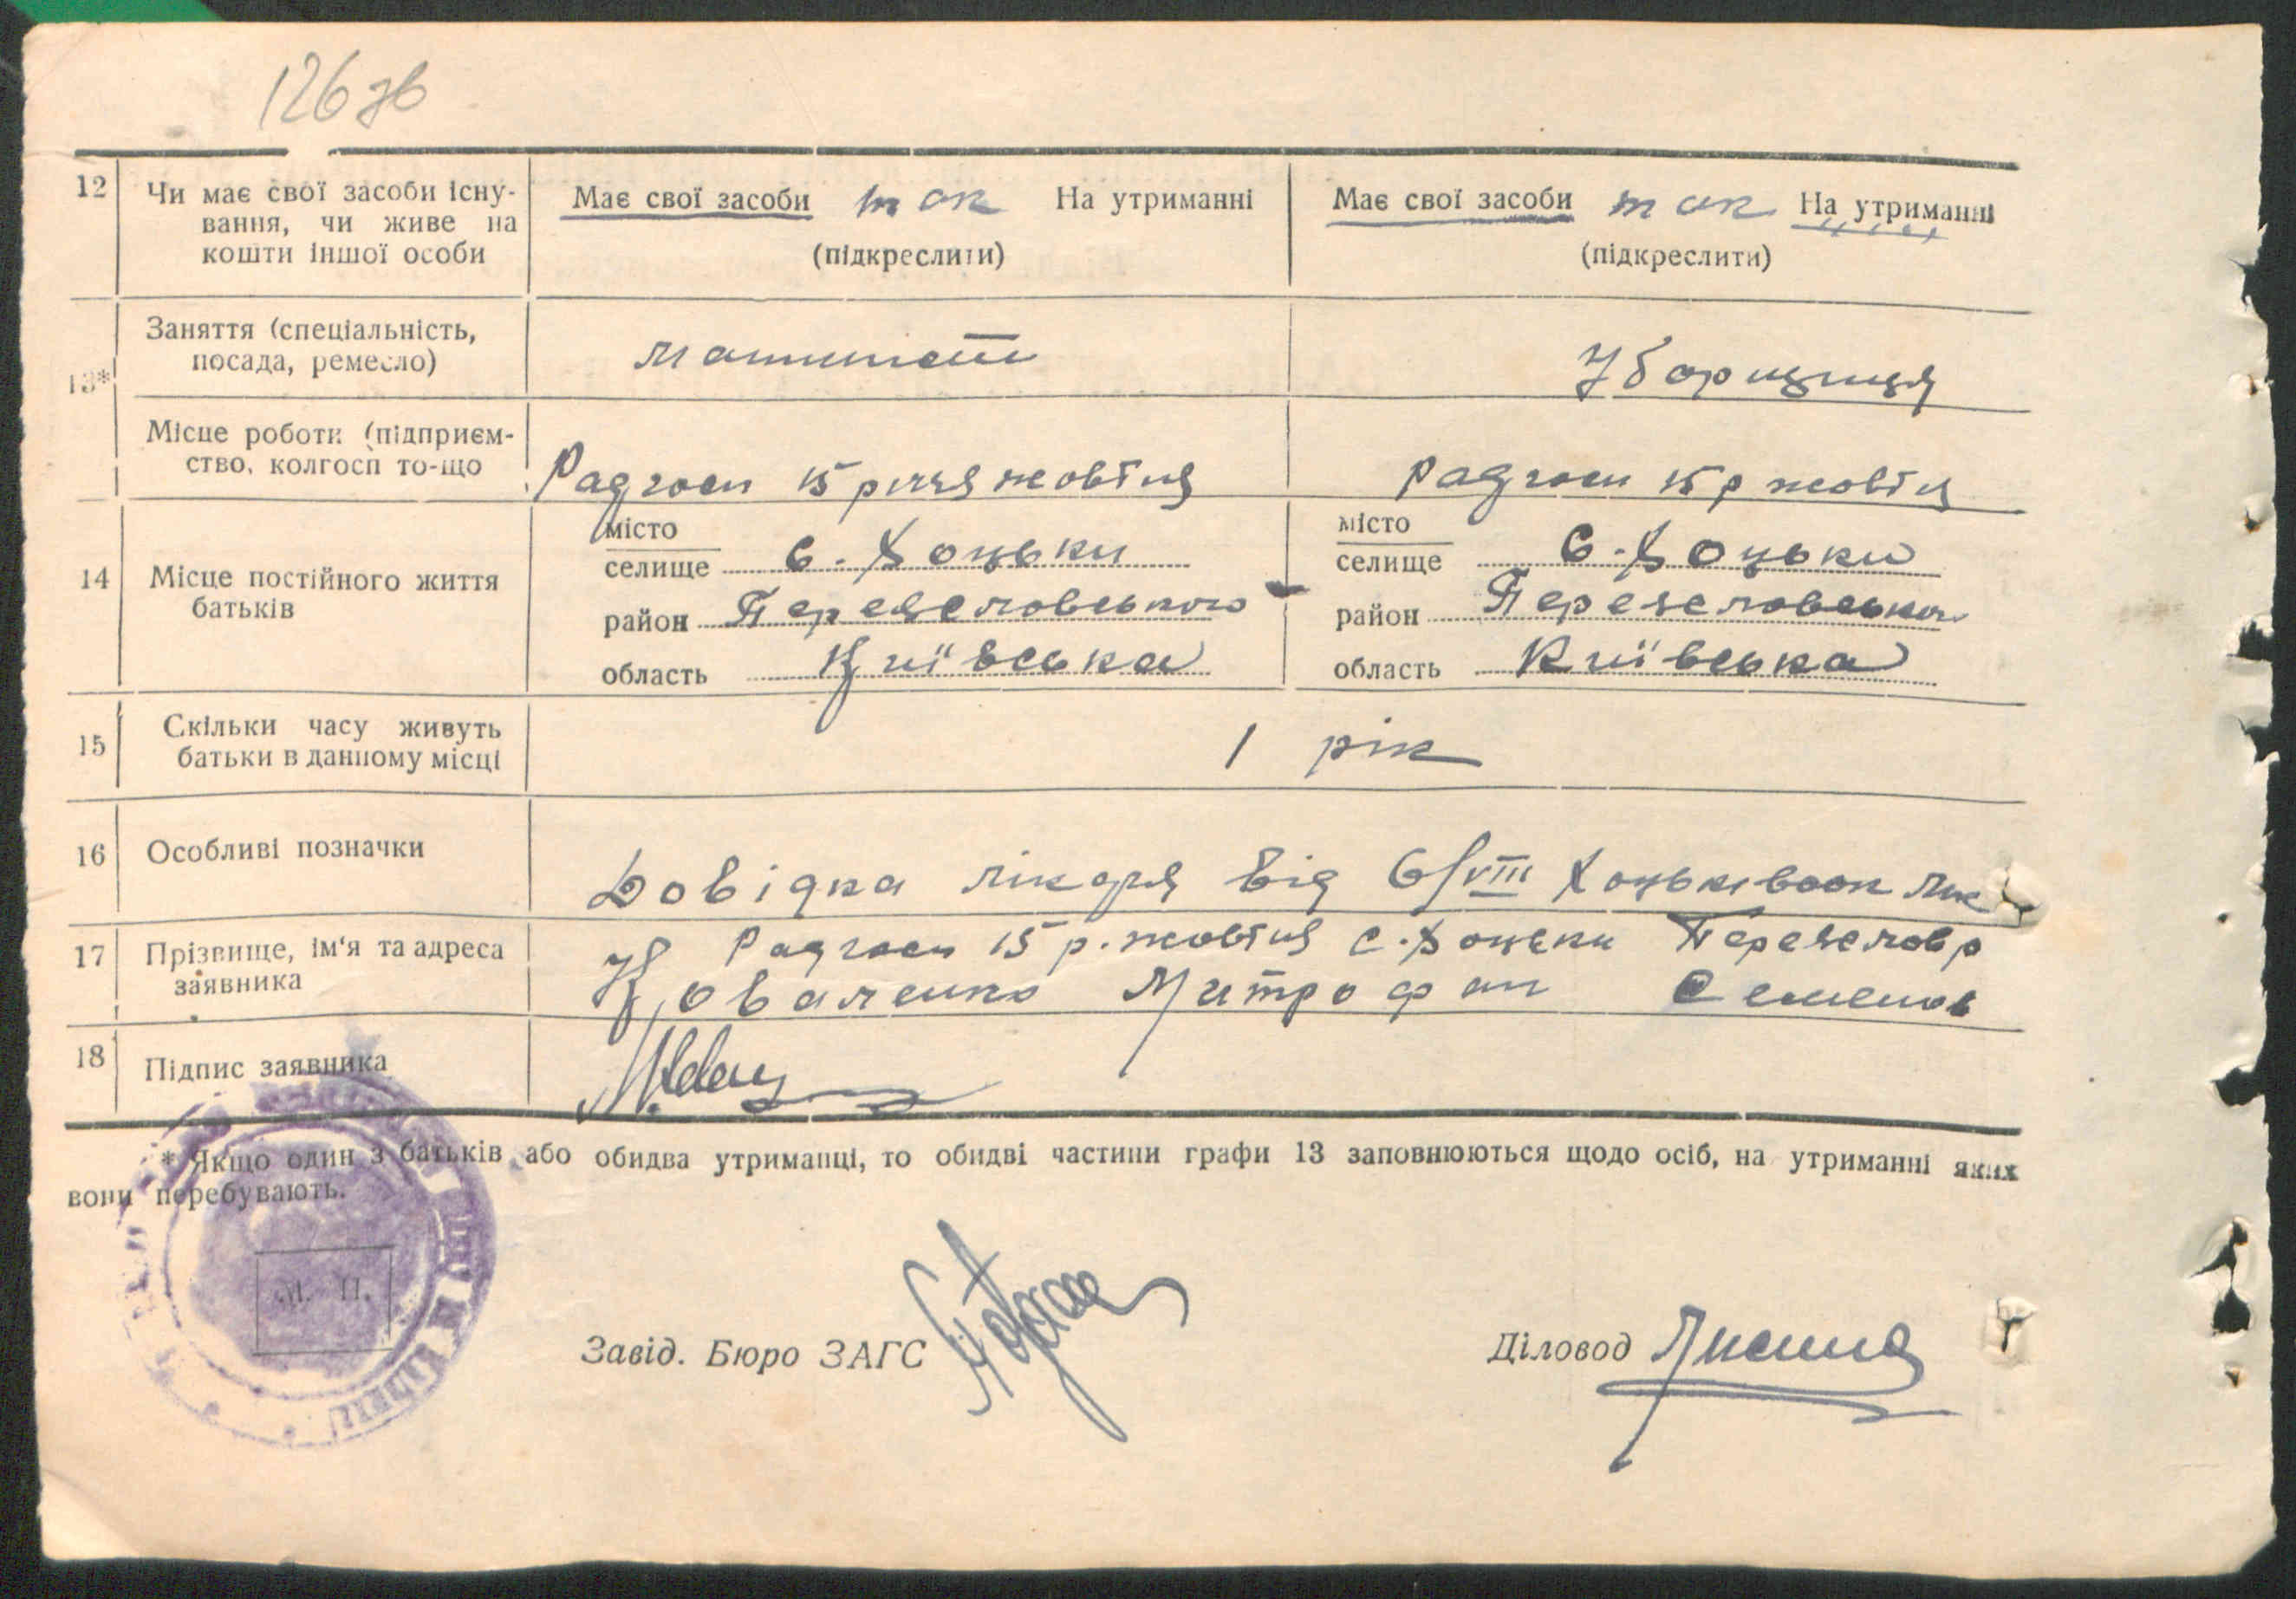 126 зв
12 Чи має свої засоби існу-
вання, чи живе на
кошти іншої особи
Має свої засоби так На утриманні
(підкреслити)
Має свої засоби так На утриманні
(підкреслити)
13*
Заняття (спеціальність,
посада, ремесло)
машиніст
Уборщиця
Місце роботи (підприєм-
ство, колгосп то-що
Радгосп 15 річчя жовтня
Радгосп 15 р жовтня
14 Місце постійного життя
батьків
місто
селище с. Хоцьки
район Переяславського
область Київська
місто
селище с. Хоцьки
район
область Київська
15 Скільки часу живуть
батьки в данному місці
1 рік
16 Особливі позначки
Довідка лікаря від 6/VIII
17 Прізвище, ім'я та адреса
заявника
Радгосп 15 р. жовтня с. Хоцьки
Коваленко Митрофан Семенов
18 Підпис заявника
* Якщо один з батьків або обидва утриманці, то обидві частини графи 13 заповнюються щодо осіб, на утриманні яких
вони перебувають.
М. П.
Завід. Бюро ЗАГС
Діловод